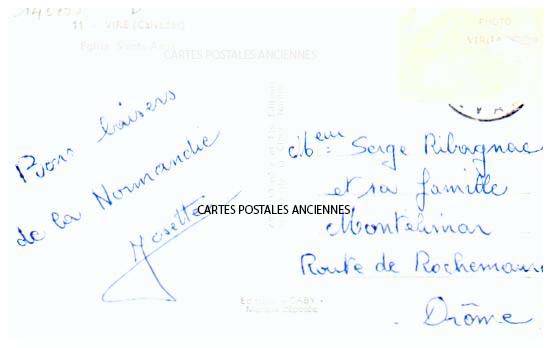 11 - VIRE (Calvados)
Eglise Sainte-Anne
CARTES POSTALES ANCIENNES
PHOTO
VERITABLE
Bons baisers
de la Normandie
Josette
Serge Ribagnac
et sa famille
Montelimar
Route de Rochemaure
Drôme
CARTES POSTALES ANCIENNES
Marque déposée